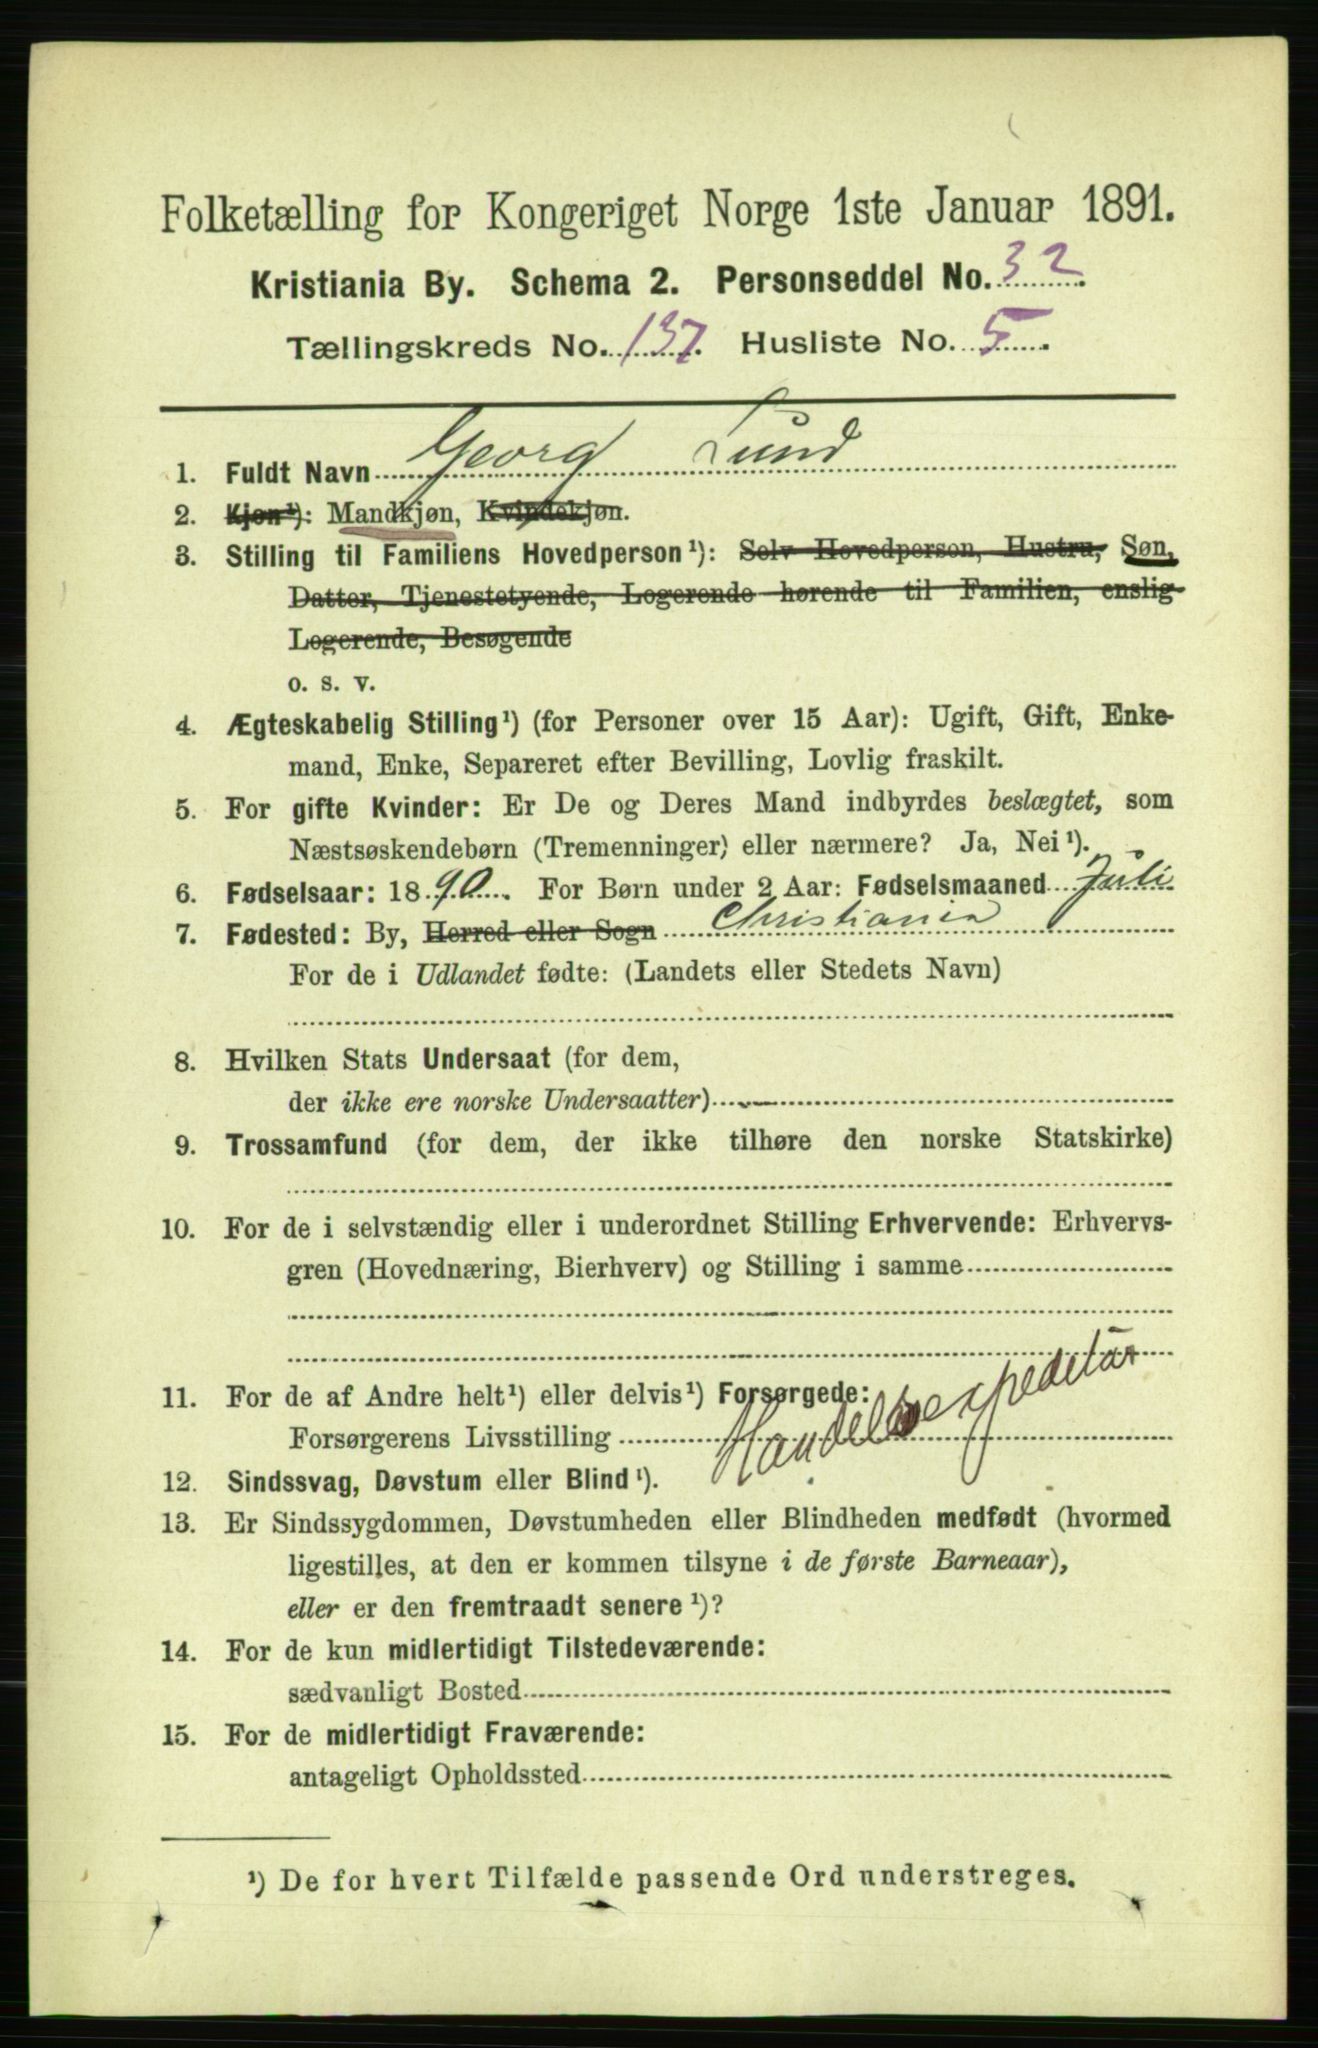 Folketælling for Kongeriget Norge 1ste Januar 1891.
Kristiania By. Schema 2. Personseddel No. 32.
Tællingskreds No. 137. Husliste No. 5.
1. Fuldt Navn Georg Lund
2. Kjøn¹): Mandkjøn, Kvindekjøn.
3. Stilling til Familiens Hovedperson¹): Selv Hovedperson, Hustru, Søn,
Datter, Tjenestetyende, Logerende hørende til Familien, enslig
Logerende, Besøgende
o. s. v.
4. Ægteskabelig Stilling¹) (for Personer over 15 Aar): Ugift, Gift, Enke-
mand, Enke, Separeret efter Bevilling, Lovlig fraskilt.
5. For gifte Kvinder: Er De og Deres Mand indbyrdes beslægtet, som
Næstsøskendebørn (Tremenninger) eller nærmere? Ja, Nei¹).
6. Fødselsaar: 1890. For Børn under 2 Aar: Fødselsmaaned Juli
7. Fødested: By, Herred eller Sogn Christiania
For de i Udlandet fødte: (Landets eller Stedets Navn)
8. Hvilken Stats Undersaat (for dem,
der ikke ere norske Undersaatter)
9. Trossamfund (for dem, der ikke tilhøre den norske Statskirke)
10. For de i selvstændig eller i underordnet Stilling Erhvervende: Erhvervs-
gren (Hovednæring, Bierhverv) og Stilling i samme
11. For de af Andre helt¹) eller delvis¹) Forsørgede:
Forsørgerens Livsstilling Handelsexpeditør
12. Sindssvag, Døvstum eller Blind¹).
13. Er Sindssygdommen, Døvstumheden eller Blindheden medfødt (hvormed
ligestilles, at den er kommen tilsyne i de første Barneaar),
eller er den fremtraadt senere¹)?
14. For de kun midlertidigt Tilstedeværende:
sædvanligt Bosted
15. For de midlertidigt Fraværende:
antageligt Opholdssted
¹) De for hvert Tilfælde passende Ord understreges.